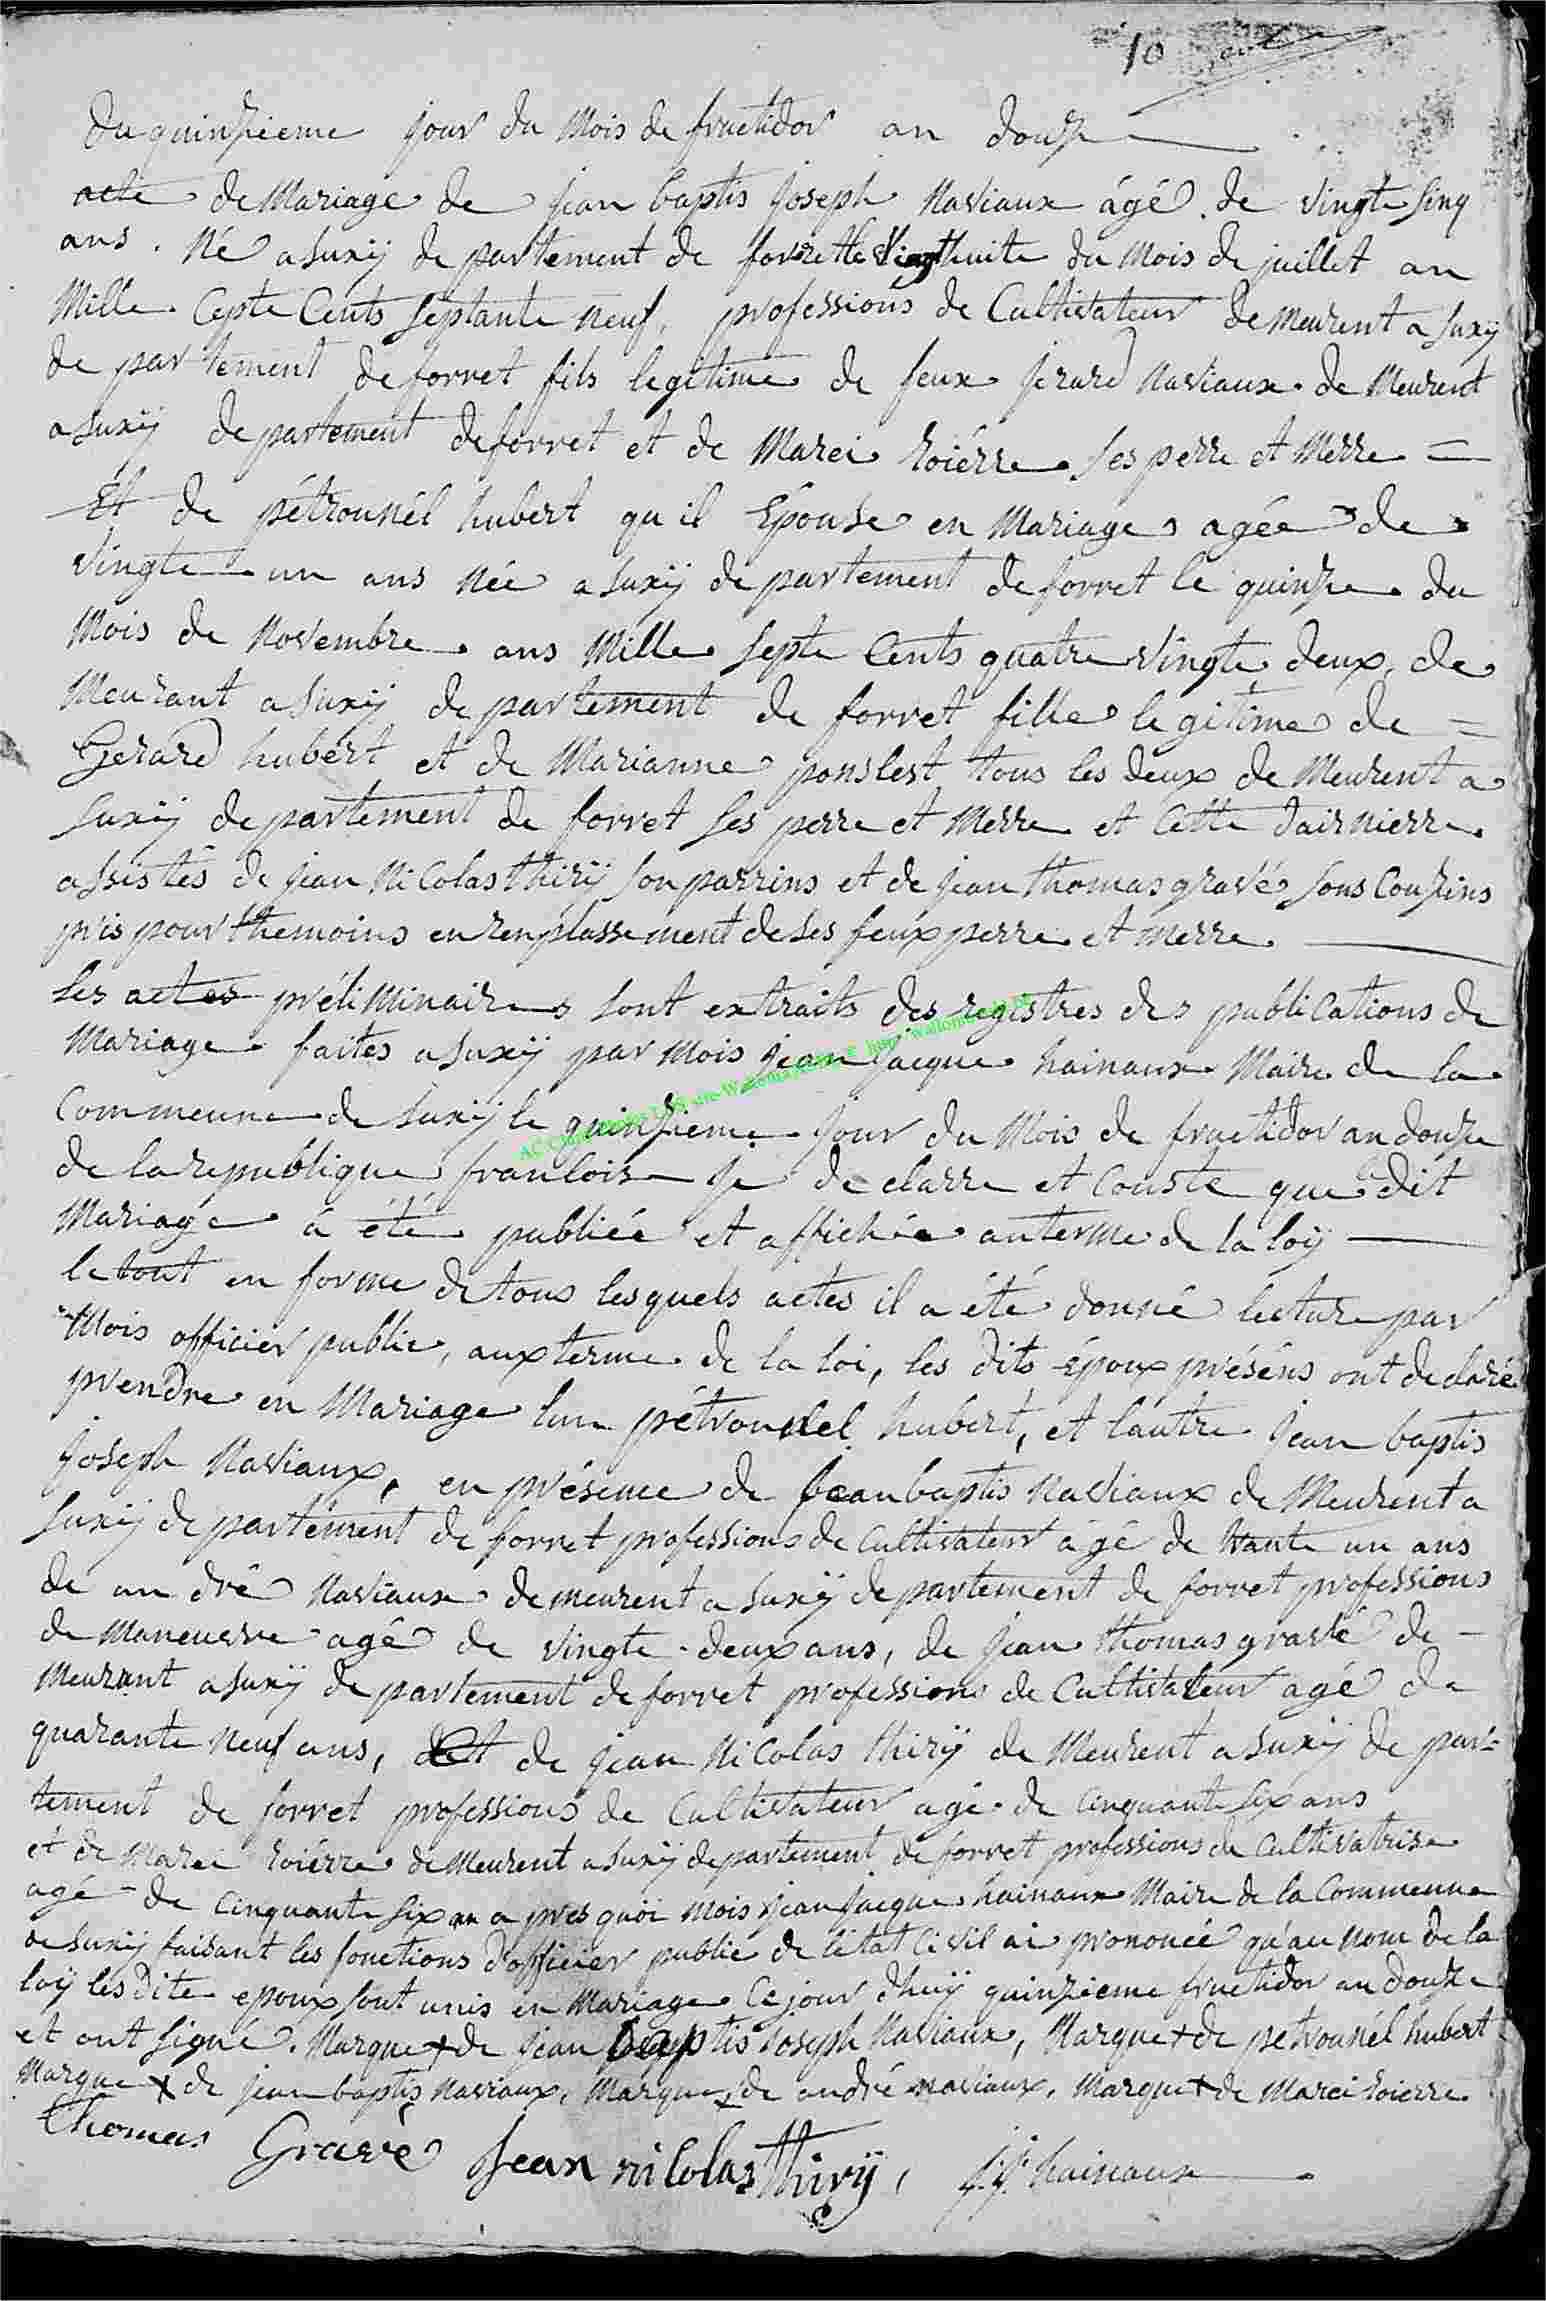 10
du quinzieme jour du Mois de fructidor an douze
acte de Mariage de jean baptis joseph Naviaux âgé de vingte sinq
ans. Né a suxÿ departement de forret le vingthuite du Mois de juillet an
Mille Cepte Cents septante neuf, professions de Cultivateur demeurent a suxÿ
departement de forret fils legitime de feux jerard Naviaux demeurent
a suxÿ departement de forret et de Marei Roiérre ses perre et Merre =
Et de pétrounél hubert qu il Épouse en Mariage agée de
vingte un ans née a suxÿ departement de forret le quinze du
Mois de Novembre ans Mille septe Cents quatre vingte deux de
Meurant a suxÿ departement de forret fille legitime de =
Gerard hubert et de Marianne ponslest tous les deux de Meurent a
suxÿ departement de forret ses perre et Merre et Cette dairnierre
assistés de jean NiColas thirÿ son parrins et de jean thomas gravé sons Couzins
pris pour themoins en renplassement de ses feux perre et merre
les actes préliminaires sont extraits des registres des publications de
Mariage faites a suxÿ par Mois jean jacque hainaux Maire de la
Commeune de suxÿ le quinzieme jour du Mois de fructidor an douze
de la republique francoise je declarre et Conste que Ce dit
Mariage à été publiée et affichée auterme de la loÿ
le tout en forme de tous lesquels actes il a été donné lecture par
Mois officier public, aux terme de la loi, les dits Époux préséns ont declaré
prendre en Mariage lun pétrounel hubert, et láutre jean baptis
joseph Naviaux, en présence de jean baptis Naviaux deMeurent a
suxÿ departement de forret professions de Cultivateur agé de trante un ans
de andré Naviaux demeurent a suxÿ departement de forret professions
de Maneuvre agé de vingte deux ans, de jean thomas gravé de -
Meurant a suxÿ departement de forret professions de Cultivateur agé de
quarante neuf ans, et de jean NiColas thirÿ de Meurent a suxÿ depar=
tement de forret professions de Cultivateur agé de Cinquante six ans
et de Marei Roiérre deMeurent a suxÿ departement de forret professions de Cultivatrise
agé de Cinquante six an a pres quoi Mois jean jacque hainaux Maire de la Commeune
de suxÿ faisant les fonctions d'officier public de létat Civil ai prononcé qu'au Nom de la
loÿ les dite epoux sont unis en Mariage Ce jour d'huÿ quinzieme fructidor an douze
et ont signé. Marque + de jean baptis Joseph Naviaux, Marque + de petrounél hubert
Marque + de jean baptis Naviaux, Marque + de andré naviaux, Marque + de Marei Roierre
Thomas Gravé Jean niColas Thirÿ, j.j. hainaux